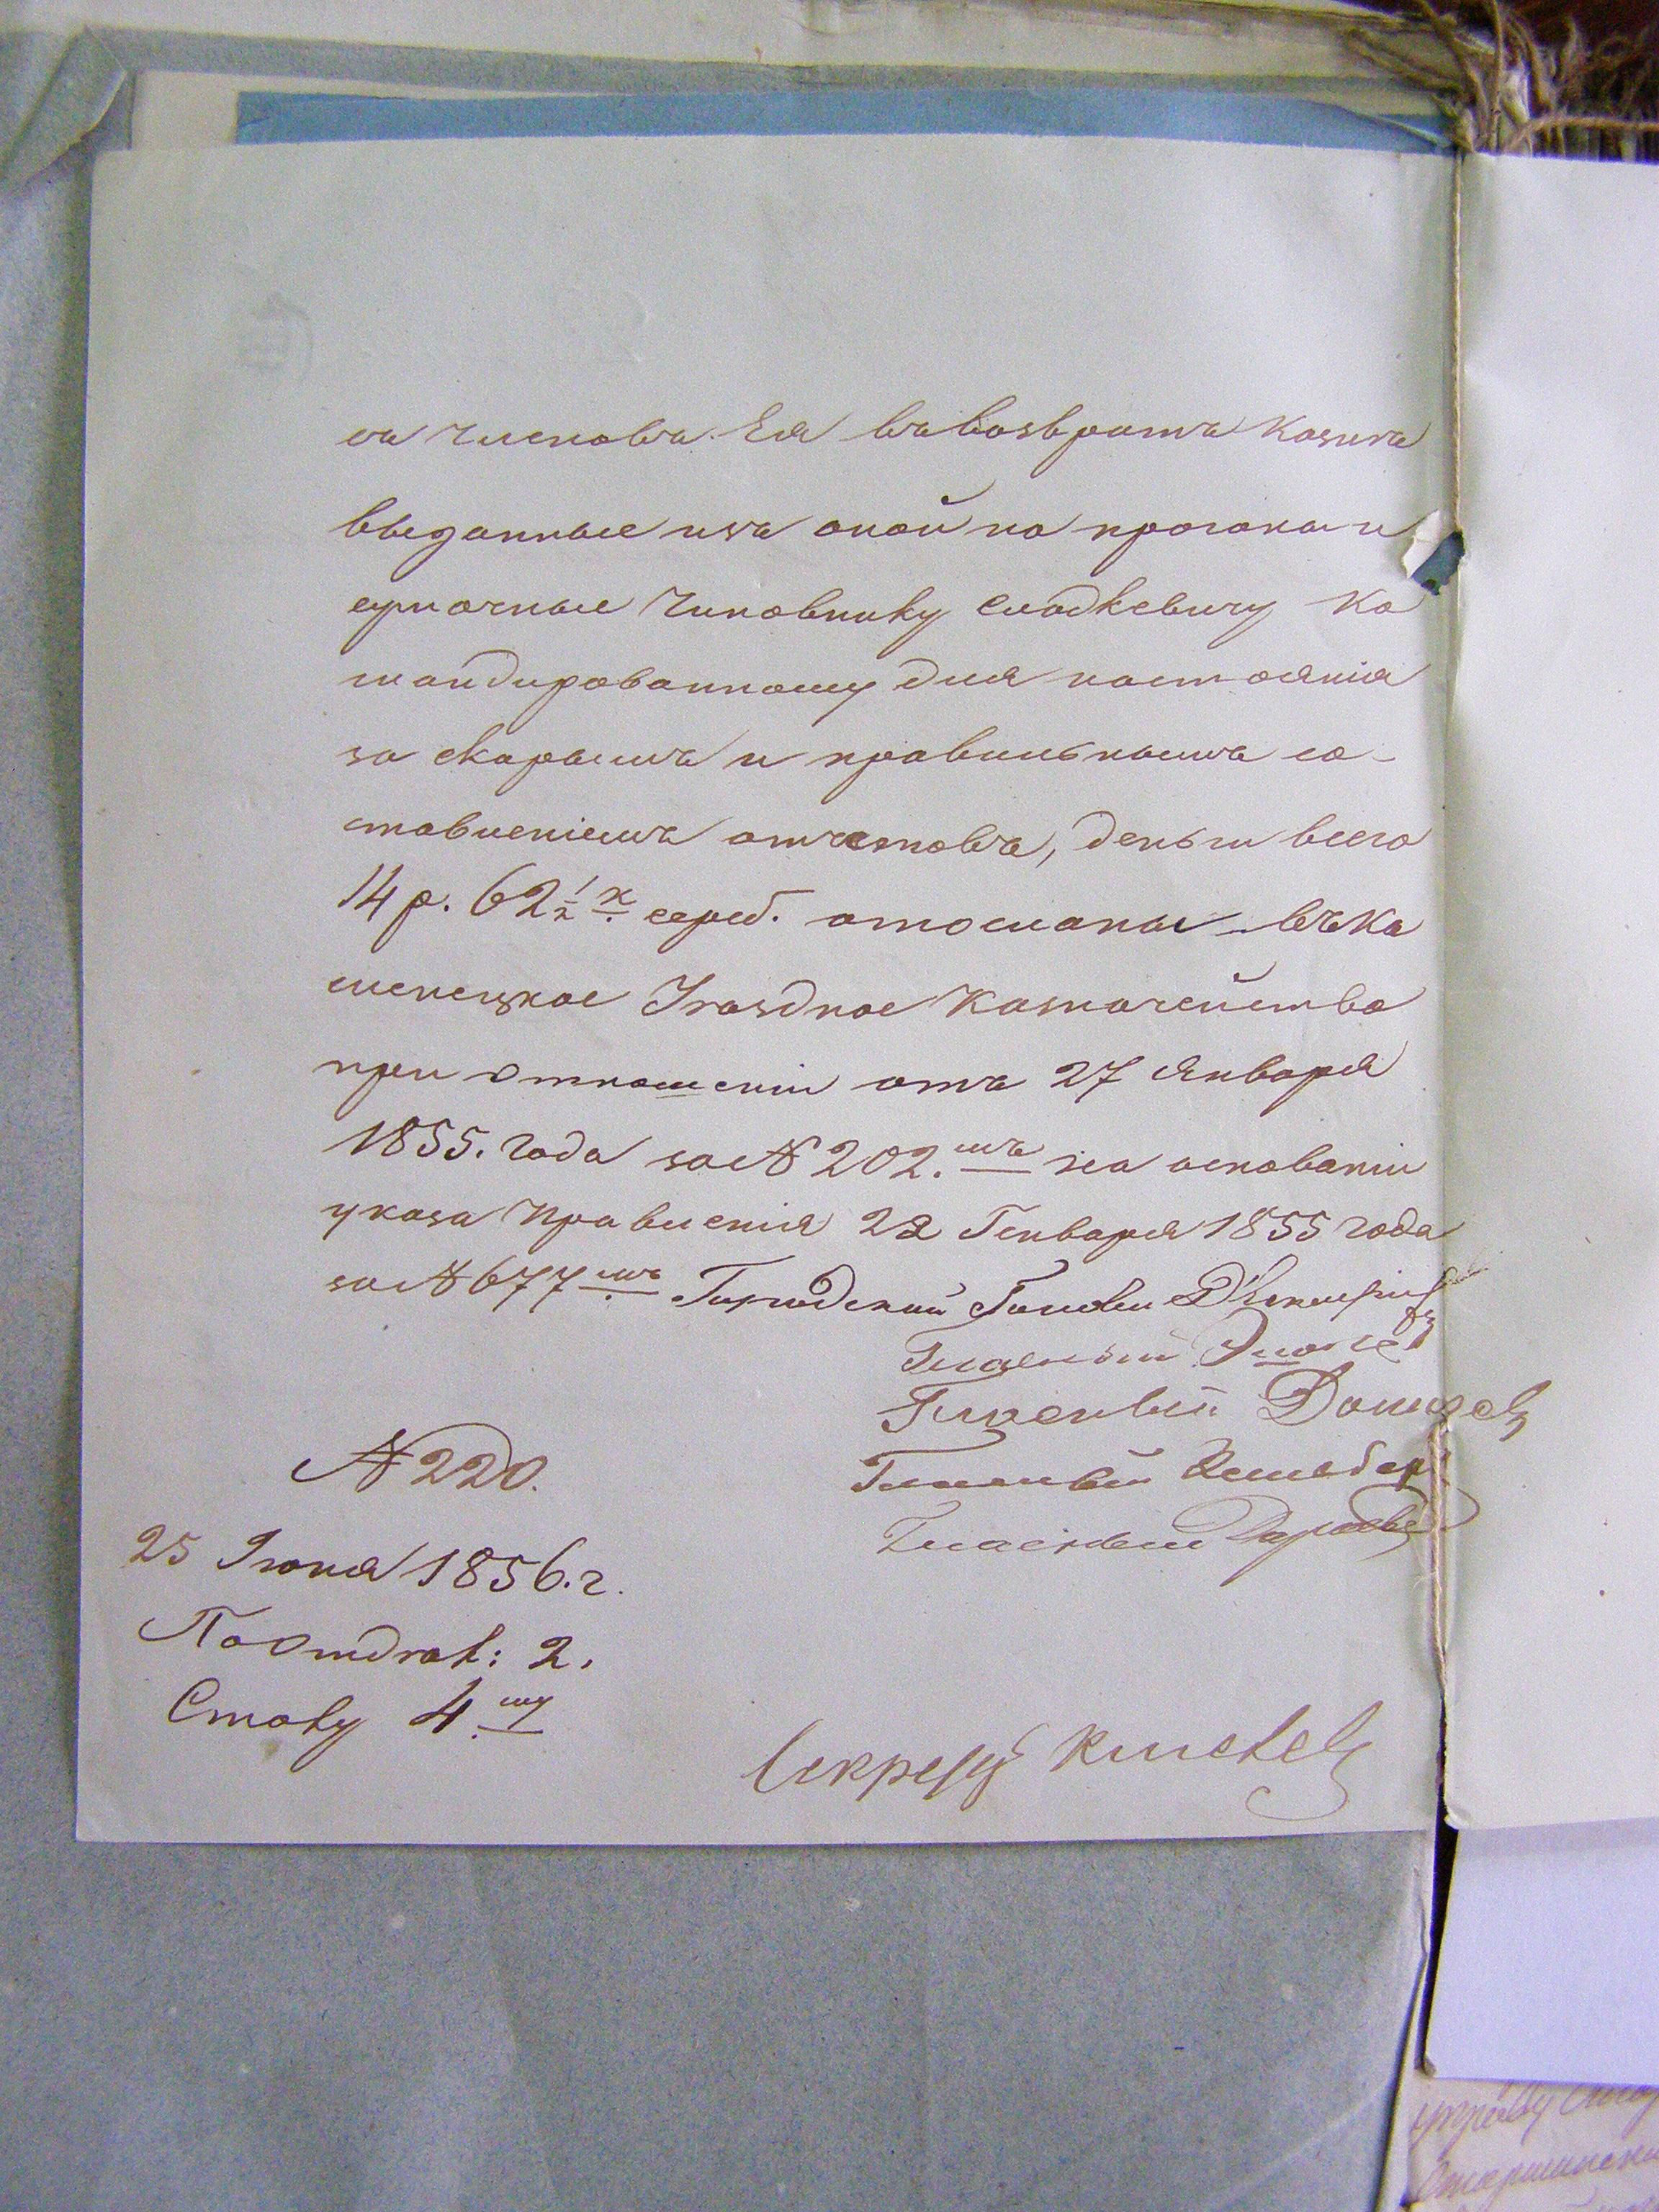 съ Членовъ Ея въ возвратъ Казнѣ
выданные изъ оной на прогоны и
суточные Чиновнику Сладкевичу Ко
мандированному для настоянія
за скорымъ и правильнымъ со-
ставленіемъ отчетовъ, деньги всего
14 р. 62 1/2 к. сереб. отосланы въ Ка
менецкое Уѣздное Казначейство
при отношеніи отъ 27 Января
1855. года за № 202.мъ на основаніи
указа Правленія 22 Генваря 1855 года
за № 677мъ Городской Голова
Гласный
Гласный
Гласный
Гласный
№ 220.
25 Іюня 1856. г.
По Отдѣл: 2.
Столу 4му
Секретарь